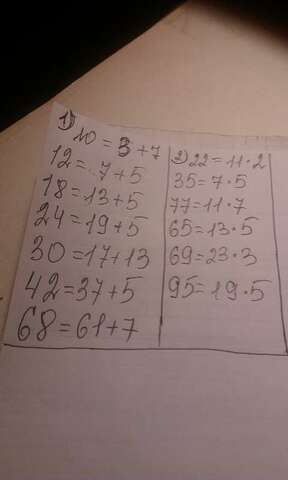 1)
10 = 3+7
12= 7+5
18=13+5
24=19+5
30=17+13
42=37+5
68=61+7
2) 22=11·2
35=7·5
77=11·7
65=13·5
69=23·3
95=19·5